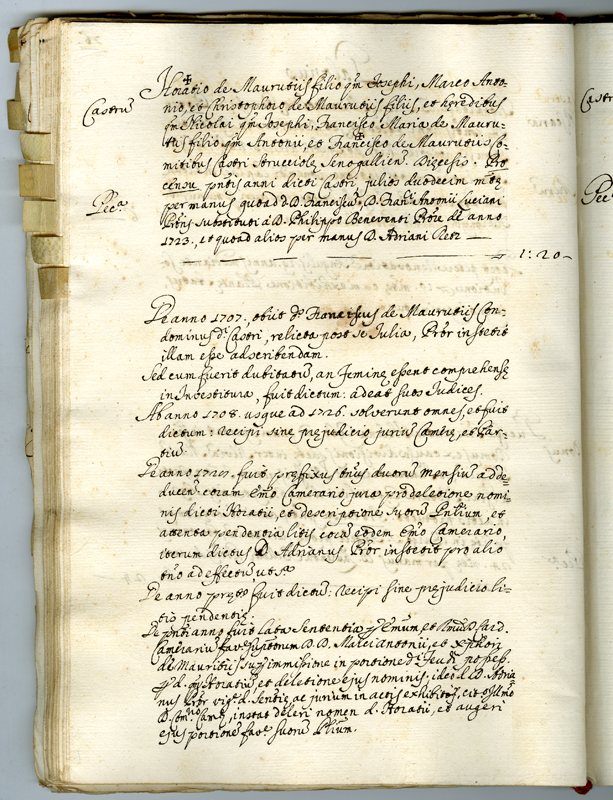 Horatio de Maurutiis filio qm Josephi, Marco Anto-
nio, et Christophoro de Maurutiis filiis, et heredibus
qm Nicolai qm Josephi, Francisco Maria de Mauru-
tiis filio qm Antonii, et Francisco de Maurutiis Co-
mitibus Castri Strucciole Senogallien. Diecesis. Pro
Castru
censu pntis anni dicti Castri julios duodecim mtæ
per manus quoad d. D. Franciscu D. Franci Antonii Luciani
Pec.a
Pñris substituti à D. Philippo Beneventi Pñre de anno
1723. et quoad alios per manus D. Adriani Retz —
1:20
De anno 1707. obiit ds Franciscus de Maurutiis Con-
dominus d. Castri, relicta post se Julia, Pñor institit
illam esse adscribendam.
Sed cum fuerit dubitatũ, an feminę essent comprehensę
in Investitura, fuit dictum: adeat suos Judices.
Ab anno 1708. usque ad 1726. solverunt omnes, et fuit
dictum: recipi sine prejudicio juriũ Camerę, et Par-
tiũ
De anno 1727. fuit pręfixus tñus duorũ mensiũ ad de-
ducen. coram Emo Camerario jura pro deletione nomi-
nis dicti Horatii, et descriptione suorũ
attenta pendentia litis corã eodem Emo Camerario,
iterum dictus D. Adrianus Pñor institit pro alio
tño ad effectum ut s.a
De anno pręto fuit dictũ: recipi sine prejudicio li-
tis pendentis.
De pñti anno fuit lata sententia p Emum, et Rmum D. Card.
Camerariũ fav. D.D. Marci Antonii, et Xphori
de Mauritiis sup immissione in portione d.
d. qm Horatiũ et deletione ejus nominis, ideo d. D. Adria
nus Pñor vig. d. Sententię ac jurium in actis exhibitorũ,
D. instat deleri nomen d. Horatii, et augeri
ejus portionẽ fav. suorũ Plium.